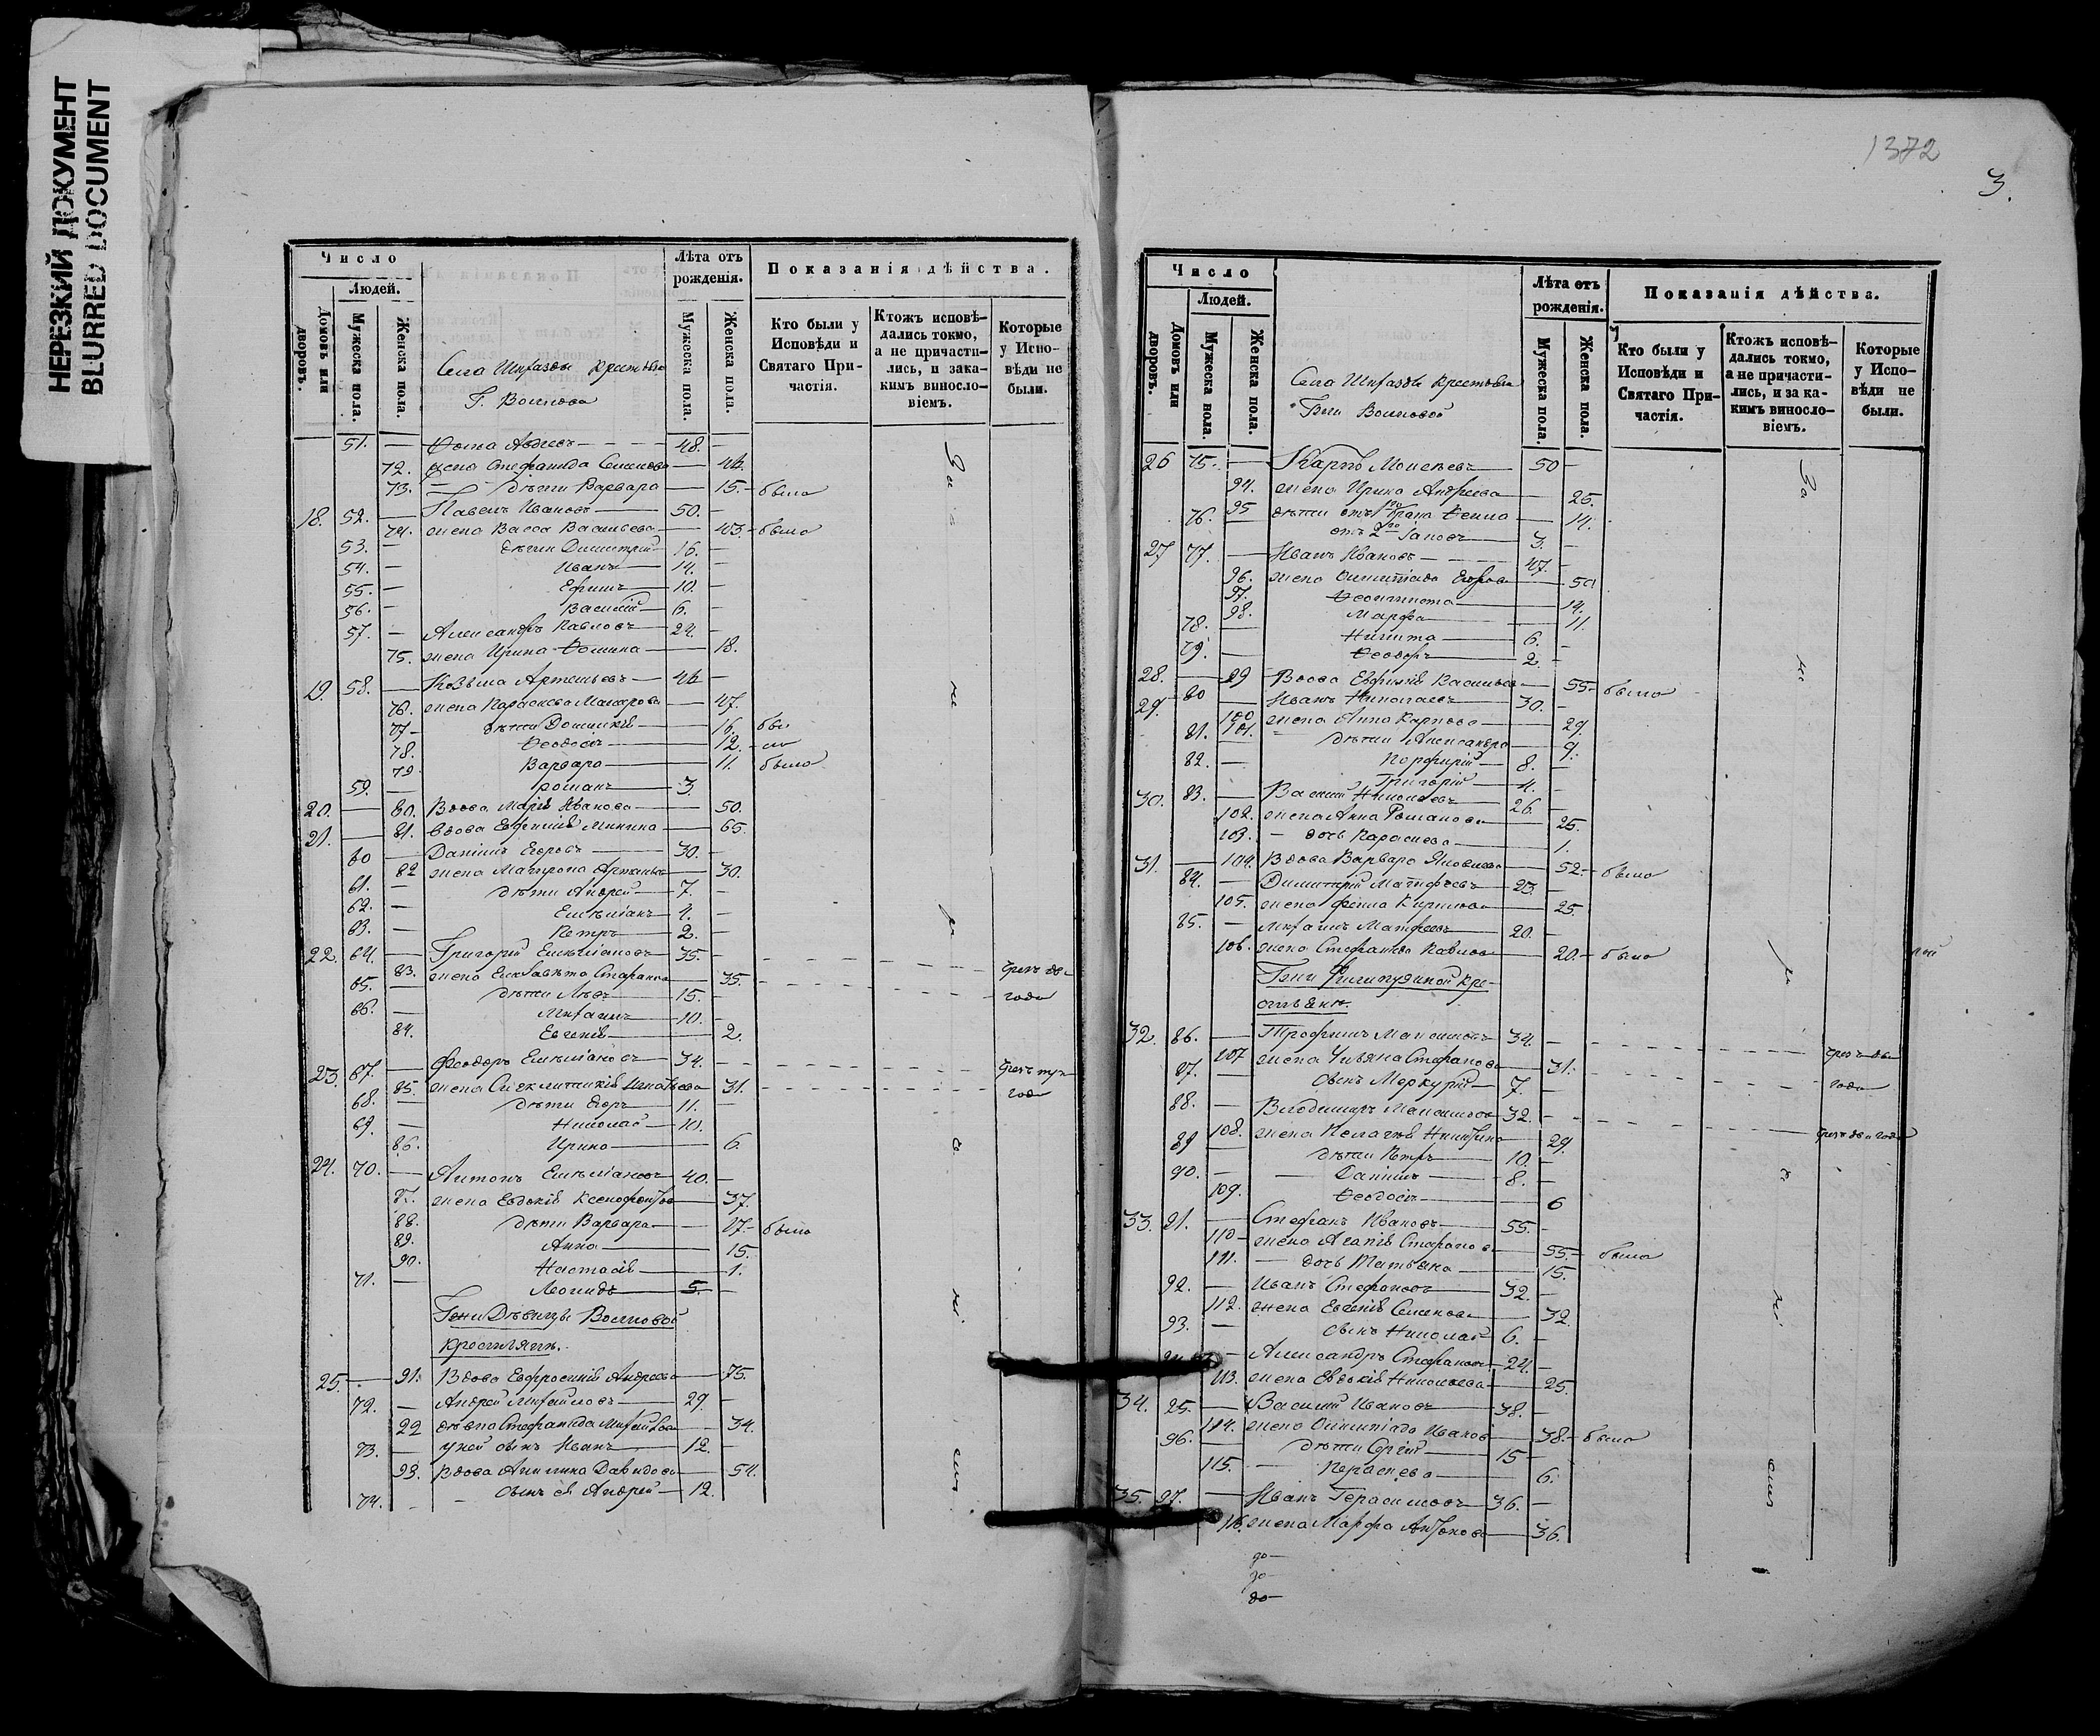 НЕРЕЗКИЙ ДОКУМЕНТ
BLURRED DOCUMENT
Число
Людей.
Домовъ или дворовъ.
Мужеска пола.
Женска пола.
Села крестьяне
Г. Воинова
Лѣта отъ рожденія.
Мужеска пола.
Женска пола.
Показанія дѣйства.
Кто были у Исповѣди и Святаго Причастія.
Ктожъ исповѣдались токмо, а не причастились, и закакимъ винословіемъ.
Которые у Исповѣди не были.
51. — Ѳома Авдеевъ 48. —
72. жена Стефанида Семенова —
73. — дѣти Варвара — 15. — была
18. 52. — Павелъ Ивановъ — 50. —
74. жена Васса Васильева — 43. — была
53. — дѣти Димитрій 16. —
54. — Иванъ 14. —
55. — Ефимъ 10. —
56. — Василій 6. —
57. — Александръ Павловъ 24. —
75. жена Ирина Ѳомина — 18.
19. 58. — Козьма Артемьевъ —
76. жена Параскева Макарова — 47.
77 — дѣти Домникія — 16.
78. Ѳеодосія — 12.
79. Варвара — 11. была
59. — Романъ 3
20. — 80. Вдова Марія Иванова — 50.
21. — 81. вдова Евфимія Минина — 65.
60 — Даніилъ Егоровъ 30. —
82 жена Матрона Артемьева — 30.
61. — дѣти Андрей 7. —
62. — Емиліанъ 4. —
63. — Петръ 2. —
22. 64. — Григорій Емиліановъ 35. —
83. жена Елисавета Стефанова — 35.
65. — дѣти Левъ 15. —
года
66. — Михаилъ 10. —
84. Евгенія — 2.
23. 67. — Феодоръ Емиліановъ 34. —
85. жена Синклитикія Игнатьева 31.
68. — дѣти Егоръ 11. —
69. — Николай 10.
86. Ирина — 6.
24. 70. — Антонъ Емиліановъ 40. —
87. жена Евдокія Ксенофонтова 37.
88. дѣти Варвара — 17 — была
89. Анна — 15.
90. Настасія — 1.
71. — Леонидъ 5. —
Гжи Дѣвицы Воиновой
крестьяне.
25. — 91. Вдова Евфросинія Андреева — 75.
72. — Андрей Михайловъ 29. —
92 дѣвка Стефанида Михайлова — 34.
73. — у ней сынъ Иванъ 12. —
93. вдова Акилина Давидова — 54.
74. — сынъ ея Андрей 12.
1372
3.
Число
Людей.
Домовъ или дворовъ.
Мужеска пола.
Женска пола.
Села крестьяне
Гжи Воиновой
Лѣта отъ рожденія.
Мужеска пола.
Женска пола.
Показанія дѣйства.
Кто были у Исповѣди и Святаго Причастія.
Ктожъ исповѣдались токмо, а не причастились, и за какимъ винословіемъ.
Которые у Исповѣди не были.
26 75. — Карпъ Моисеевъ 50 —
94. жена Ирина Андреева — 25.
95 дѣти отъ брака Ѳекла — 14.
76. — отъ 2го 3. —
27 77. — Иванъ Ивановъ 47. —
96. жена Олимпіада Егорова — 50
97. Ѳеоктиста — 14.
98. Марфа — 11.
78. — Никита 6. —
79. — Ѳеодоръ 2. —
28. — 99 Вдова Евфимія Васильева — 55 — была
29. 80 — Иванъ Николаевъ 30. —
100 жена Анна Карпова — 29.
101. дѣти Александра — 9.
81.
82. — Порфирій 8. —
Григорій 4. —
30. 83. — Василій Николаевъ 26 —
102. жена Анна Романова 25.
103. — дочь Параскева — 1.
31. — 104. Вдова Варвара Яковлева 52. — была
84. — Димитрій Матфеевъ 23. —
105. жена Фекла Кирилова 25.
85. — Михаилъ Матфеевъ 20. —
106. жена Стефанида Павлова 20. — была
Гжи Филипузиной крестьяне.
32. 86. — Трофимъ Максимовъ 34. —
107 жена Ульяна Стефанова 31.
87. — сынъ Меркурій 7. —
года
88. — Владимиръ Максимовъ 32. —
108. жена Пелагія Никитина 29.
89 дѣти Петръ 10. —
90. — Даніилъ 8. —
109. Ѳеодосія 6
33. 91. — Стефанъ Ивановъ 55. —
110 — жена Агапія Стефанова 55. — была
111. — дочь Татьяна 15.
92. — Иванъ Стефановъ 32. —
112. жена Евгенія Семенова 32.
93. — сынъ Николай 6. —
— Александръ Стефановъ 24. —
113. жена Евдокія Николаева 25.
34. 95. — Василій Ивановъ 38. —
114. жена Олимпіада Иванова 38. — была
96. — дѣти Сергій 15 —
115. — Параскева 6.
35. 97. — Иванъ Герасимовъ 36. —
116. жена Марфа Антонова 36.
до —
до —
до —